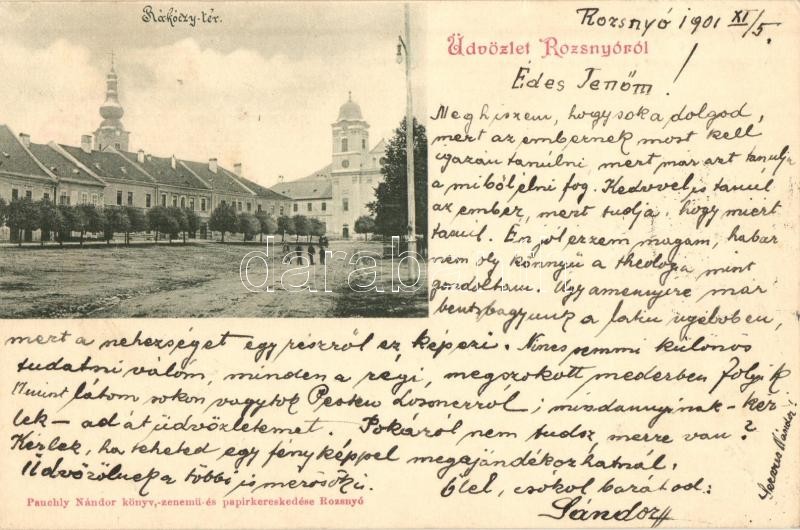 Rákóczy-tér.
Rozsnyó 1901 XI/5.
Üdvözlet Rozsnyóról
Édes Jenőm!
Meghiszem, hogy sok a dolgod,
mert az embernek most kell
igazán tanulni, mert már azt tanulja
a miből élni fog. Kedvvel is tanul
az ember, mert tudja, hogy miért
tanul. Én jól érzem magam, habár
nem oly könnyű a theologia mint
gondoltam. Úgy amennyire már
bent vagyunk a latin nyelvben,
mert a nehezséget egy részről ez képezi. Nincs semmi különös
tudatni valóm, minden a régi, megszokott mederben folyik
Amint látom sokan vagytok Pesten Losoncról; mindannyinak - kér-
lek - add át üdvözletemet. Pokáról nem tudsz, merre van?
Kérlek, ha teheted egy fényképpel megajándékozhatnál.
Üdvözölnek a többi ismerősök is.
Ölel, csókol barátod:
Sándor
Nándor!
darabanth
Pauchly Nándor könyv,-zenemű-és papirkereskedése Rozsnyó